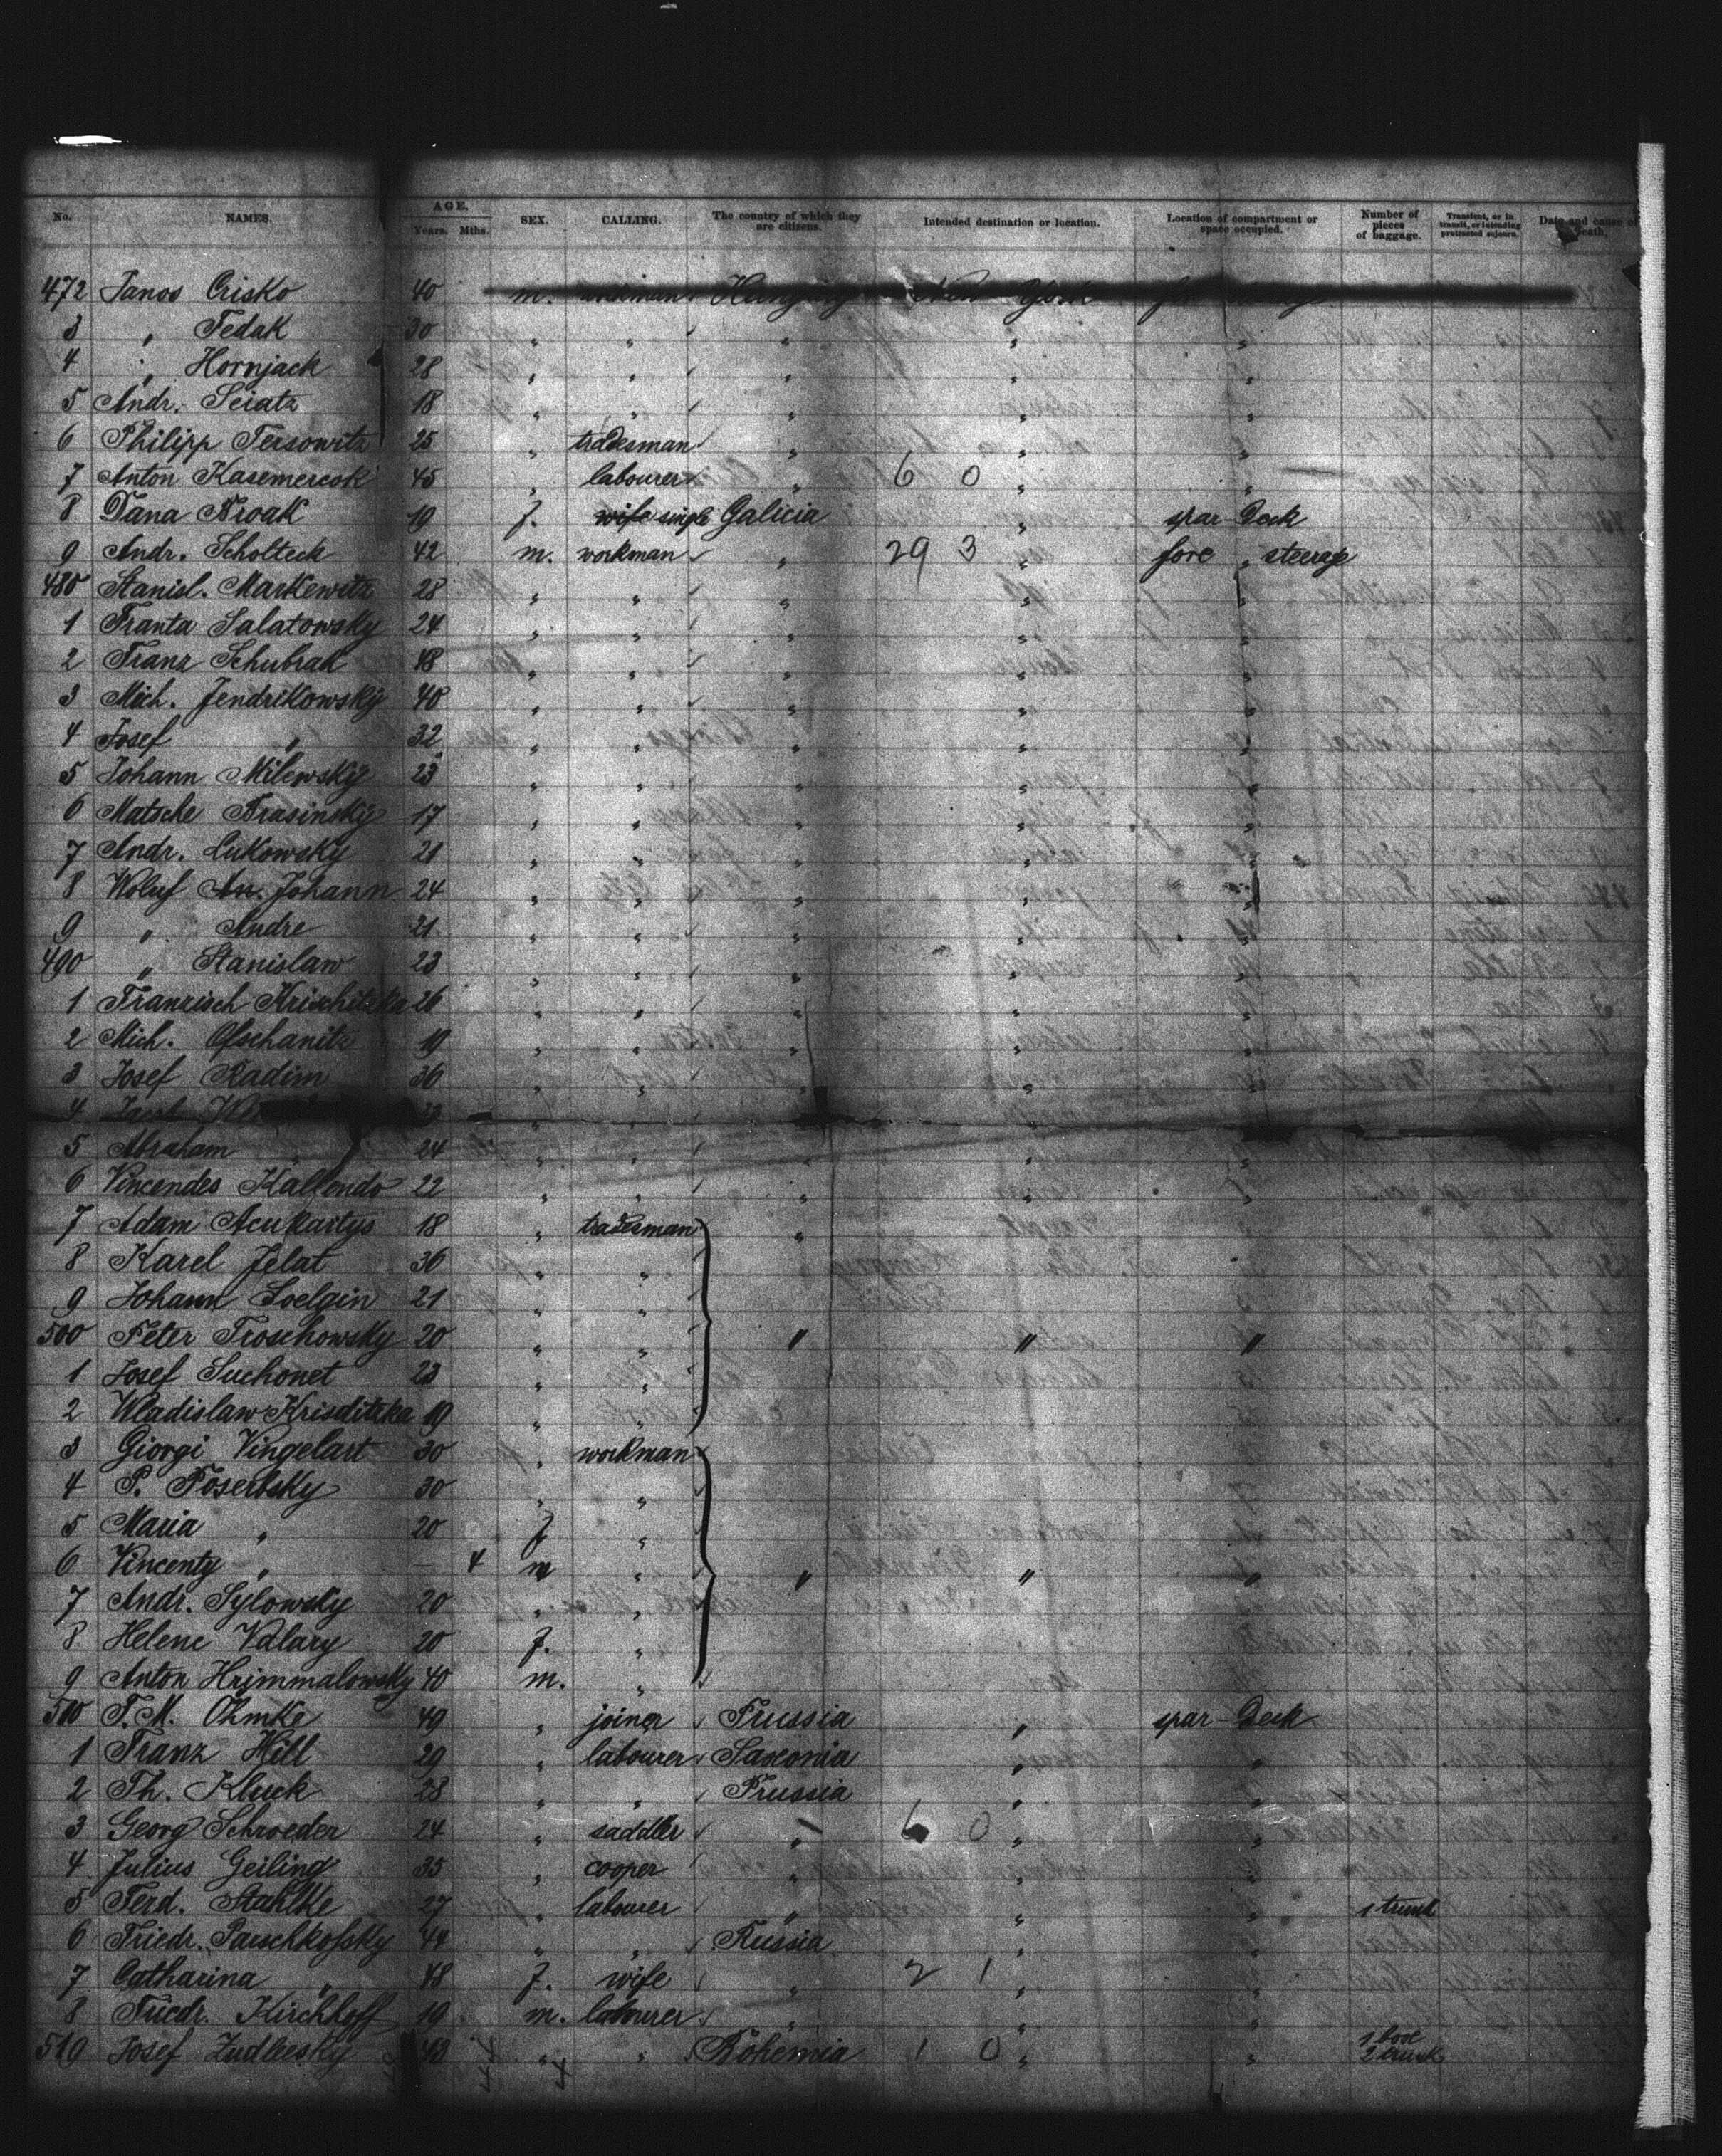 No. NAMES. AGE. Years. Mths. SEX. CALLING. The country of which they are citizens. Intended destination or location. Location of compartment or space occupied. Number of pieces of baggage. Transient, or in transit, or intending protracted sojourn. Date and cause of death.
472 Janos Crisko 40 m. workman Hungary New York
3 " Fedak 30 " " " " "
4 " Hornjack 28 " " " " "
5 Andr. Seiatz 18 " " " " "
6 Philipp Tersowitz 25 " tradesman " " "
7 Anton Kasemercok 45 " labourer " 6 0 " "
8 Dana Nroak 19 f. wife single Galicia " spar Deck
9 Andr. Scholteck 42 m. workman " 29 3 " fore " steerage
480 Stanisl. Markewitz 28 " " " " "
1 Franta Salatowsky 24 " " " " "
2 Franz Schubrak 18 " " " " "
3 Mich. Jendrikowsky 40 " " " " "
4 Josef " 32 " " " " "
5 Johann Milewsky 23 " " " " "
6 Matsche Brasinsky 17 " " " " "
7 Andr. Lukowsky 21 " " " " "
8 Woluf An. Johann 24 " " " " "
9 " Andre 21 " " " " "
490 " Stanislaw 23 " " " " "
1 Franzisch Krischitzka 26 " " " " "
2 Mich. Ofschanitz 19 " " " " "
3 Josef Radim 36 " " " " "
4
5 Abraham " 24 " " " " "
6 Vincendes Kallendo 22 " " " " "
7 Adam Acukartys 18 " tradesman "
8 Karel Jelat 36 " "
9 Johann Soelgin 21 " "
500 Peter Troschowsky 20 " " " " "
1 Josef Suchonet 23 " "
2 Wladislaw Krisditzka 19 " "
3 Giorgi Vingelart 30 " workman
4 P. Posertsky 30 " "
5 Maria " 20 f "
6 Vincenty " — 4 m " " " "
7 Andr. Sylowsky 20 " "
8 Helene Valary 20 f. "
9 Anton Hrimmalowsky 40 m. "
510 F. M. Ohmke 49 " joiner Prussia " spar Deck
1 Franz Hill 29 " labourer Saxonia " "
2 Th. Kluck 28 " " Prussia " "
3 Georg Schroeder 24 " saddler " 6 0 " "
4 Julius Geiling 35 " cooper " " "
5 Ferd. Stahlke 27 " labourer " " " 1 trunk
6 Friedr. Parschkofsky 44 " " Russia " "
7 Catharina " 48 f. wife " 2 1 " "
8 Friedr. Kirchhoff 19 m. labourer " " "
519 Josef Zudbesky 43 " " Bohemia 1 0 " " 1 box 2 trunk